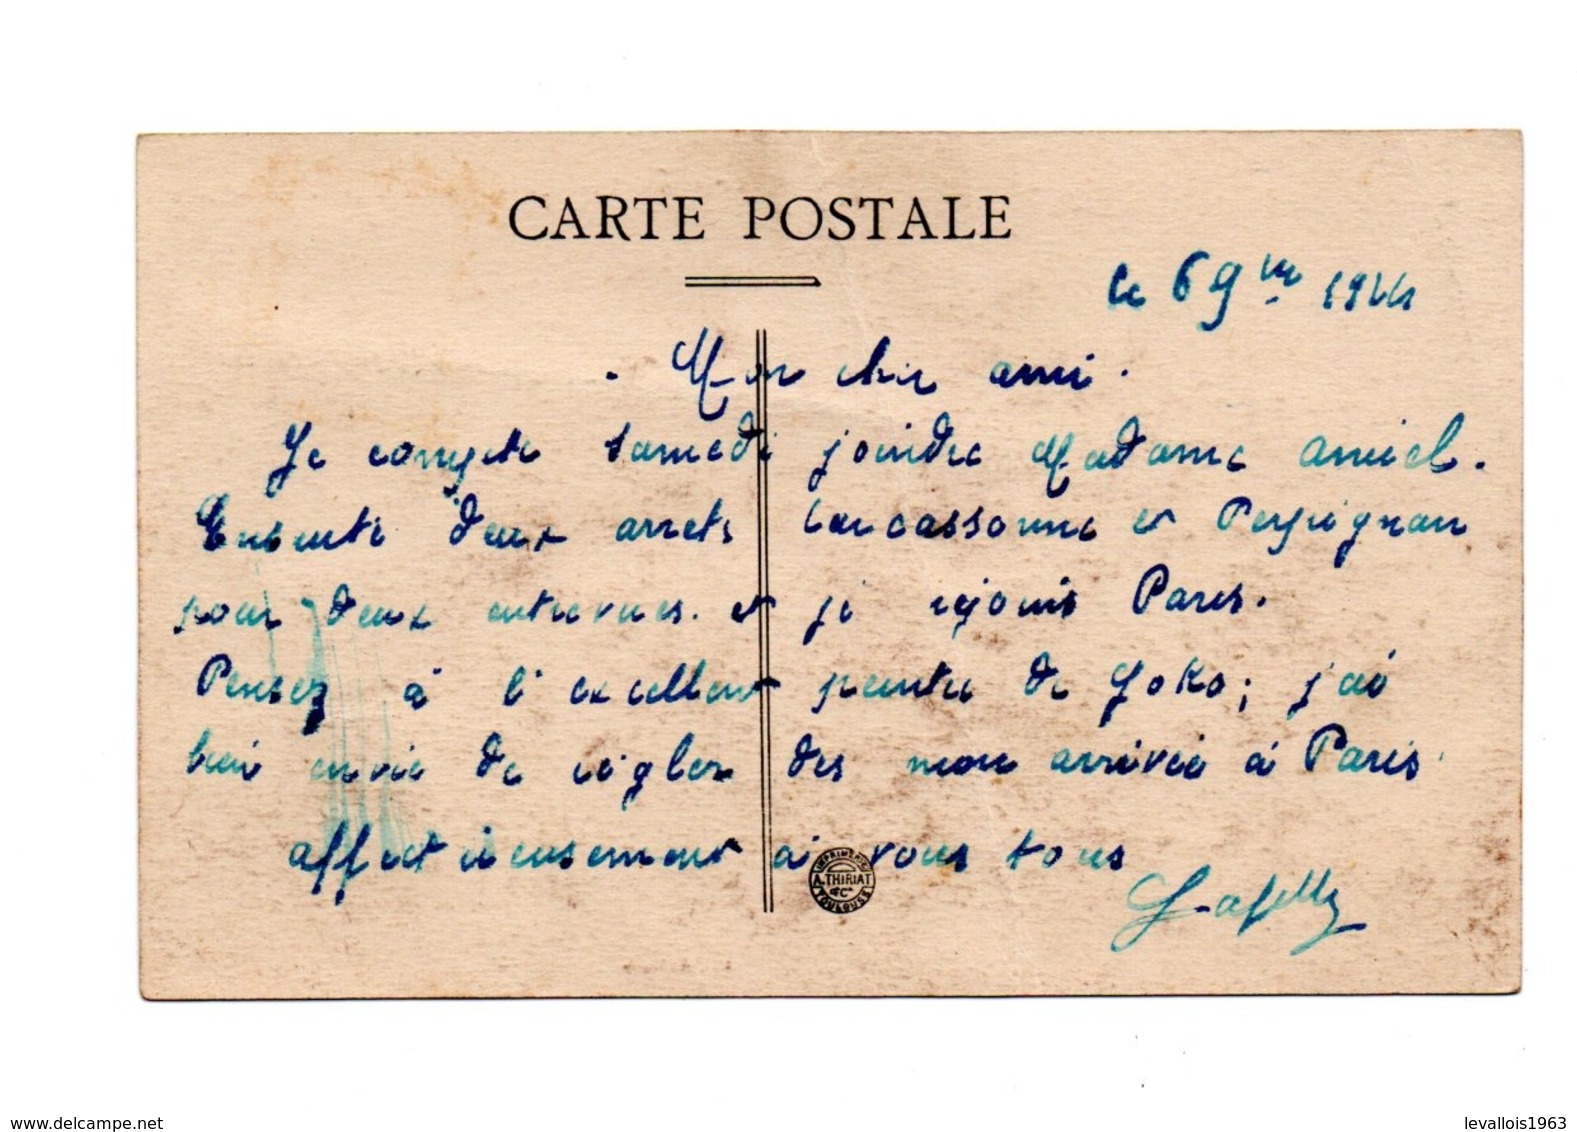 CARTE POSTALE
le 6 9bre 1944
Mon cher ami.
Je compte samedi joindre Madame Amiel.
Ensuite deux arrets Carcassonne et Perpignan
pour deux entrevues. et je rejoins Paris.
Pensez à l'excellent peintre de Goko; j'ai
bien envie de régler dès mon arrivée à Paris
affectueusement à vous tous
IMPRIMERIE
A. THIRIAT
& Cie
TOULOUSE
www.delcampe.net
levallois1963